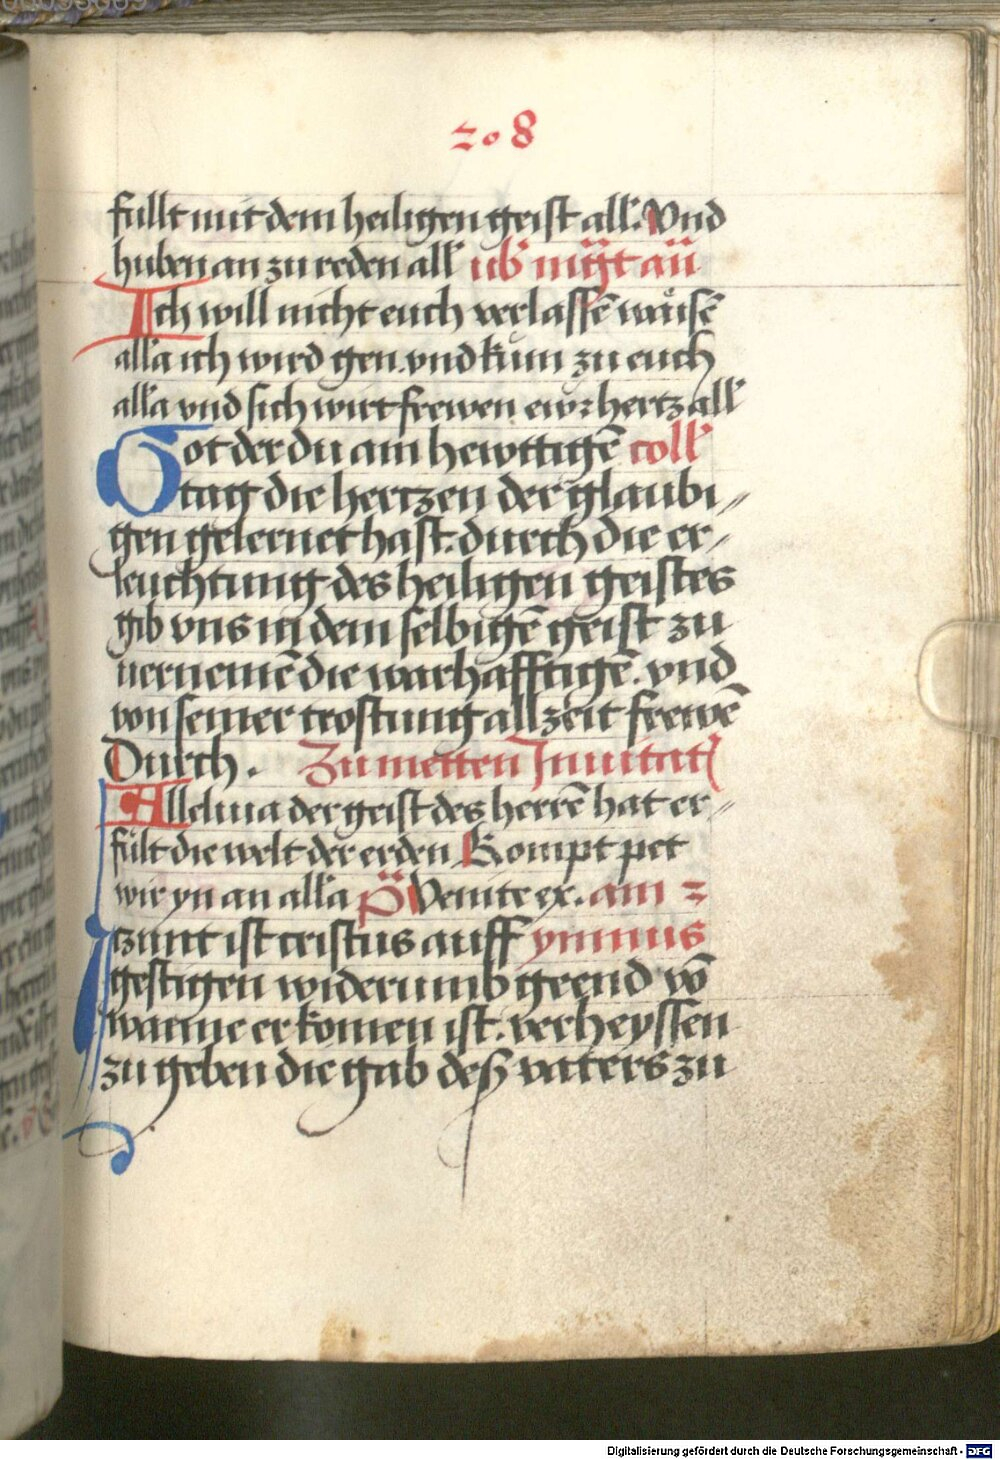 208
fullt mit dem heiligen geist all'. Vnd
huben an zu reden all' ub' mg̈t aū
Ich will nicht euch verlassē waisē
all'a ich wird gen. vnd kum zu euch
all'a vnd sich wirt frewen ewr hertz all'
Got der du am hewttigē coll'
tag die hertzen der glaubi⸗
gen gelernet hast. durch die er⸗
leuchtung des heiligen geistes
gib vns in dem selbigē geist zu
uernemē die warhafftigē. vnd
von seiner trostung allzeit frewē
Durch. Zu metten Inuitat
Alleluia der geist des herrē hat er⸗
fult die welt der erden Kompt pet
wir yn an all'a p̄s Venite ex. am 2
Iczunt ist cristus auff ymnus
gestigen widerumb geend vō
wanne er komen ist. verheyssen
zu geben die gab deß vaters zu
Digitalisierung gefördert durch die Deutsche Forschungsgemeinschaft - DFG